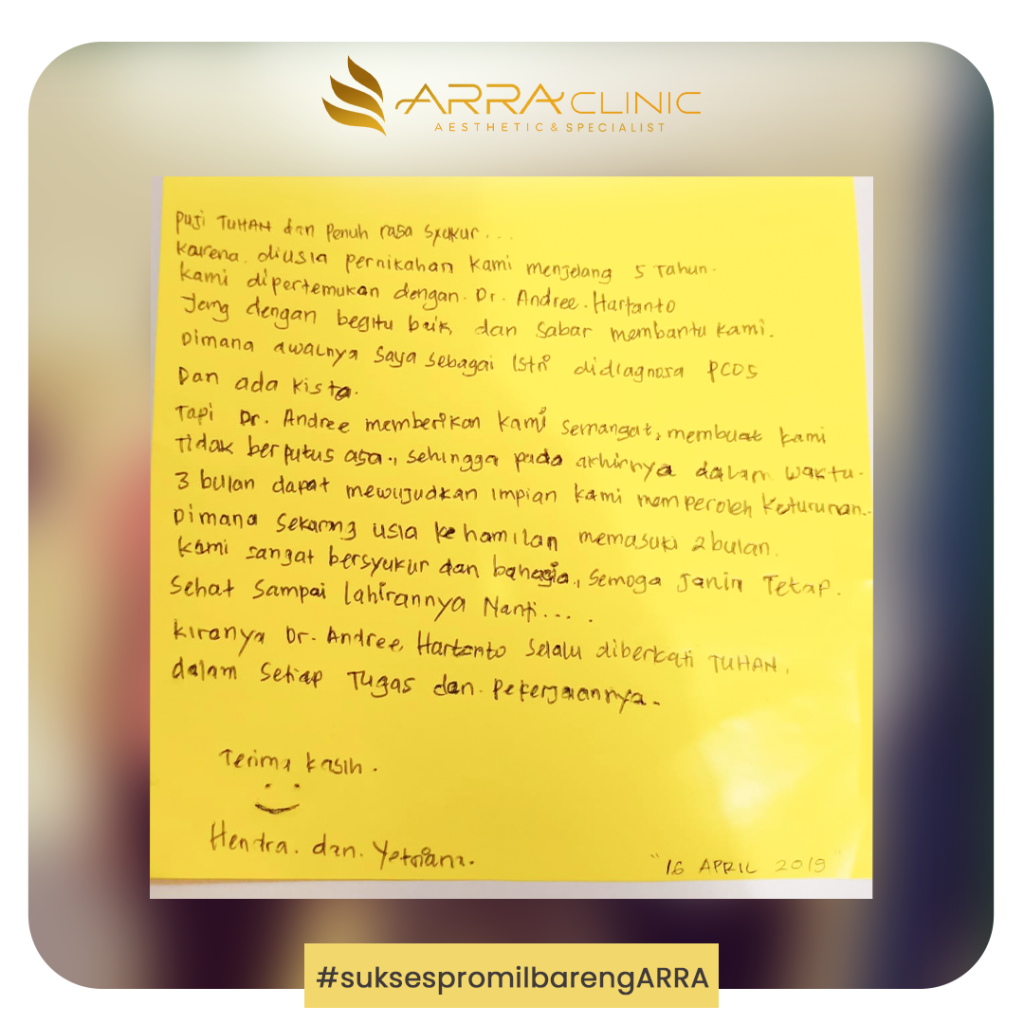 ARRA CLINIC
AESTHETIC & SPECIALIST
Puji TUHAN dan Penuh rasa syukur...
Karena. diusia pernikahan Kami menjelang 5 Tahun.
Kami dipertemukan dengan. Dr. Andree. Hartanto
Yang dengan begitu baik dan sabar membantu kami.
Dimana awalnya saya sebagai istri didiagnosa PCOS
Dan ada kista.
Tapi Dr. Andree memberikan kami semangat, membuat kami
Tidak berputus asa., sehingga pada akhirnya dalam waktu.
3 bulan dapat mewujudkan impian kami memperoleh keturunan..
Dimana sekarang usia kehamilan memasuki 2 bulan.
Kami sangat bersyukur dan bahagia., semoga janin Tetap.
Sehat sampai lahirannya Nanti....
Kiranya Dr. Andree, Hartanto selalu diberkati TUHAN,
dalam setiap Tugas dan. Pekerjaannya.
Terima kasih.
Hendra. dan. Yetriana.
"16 APRIL 2019"
#suksespromilbarengARRA